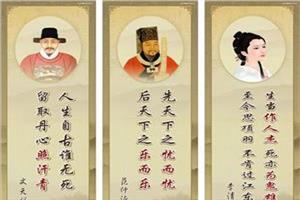 人生自古谁无死
留取丹心照汗青
文天
先天下之忧而忧
后天下之乐而乐
范仲淹
生当作人杰死亦为鬼雄
至今思项羽不肯过江东
李清